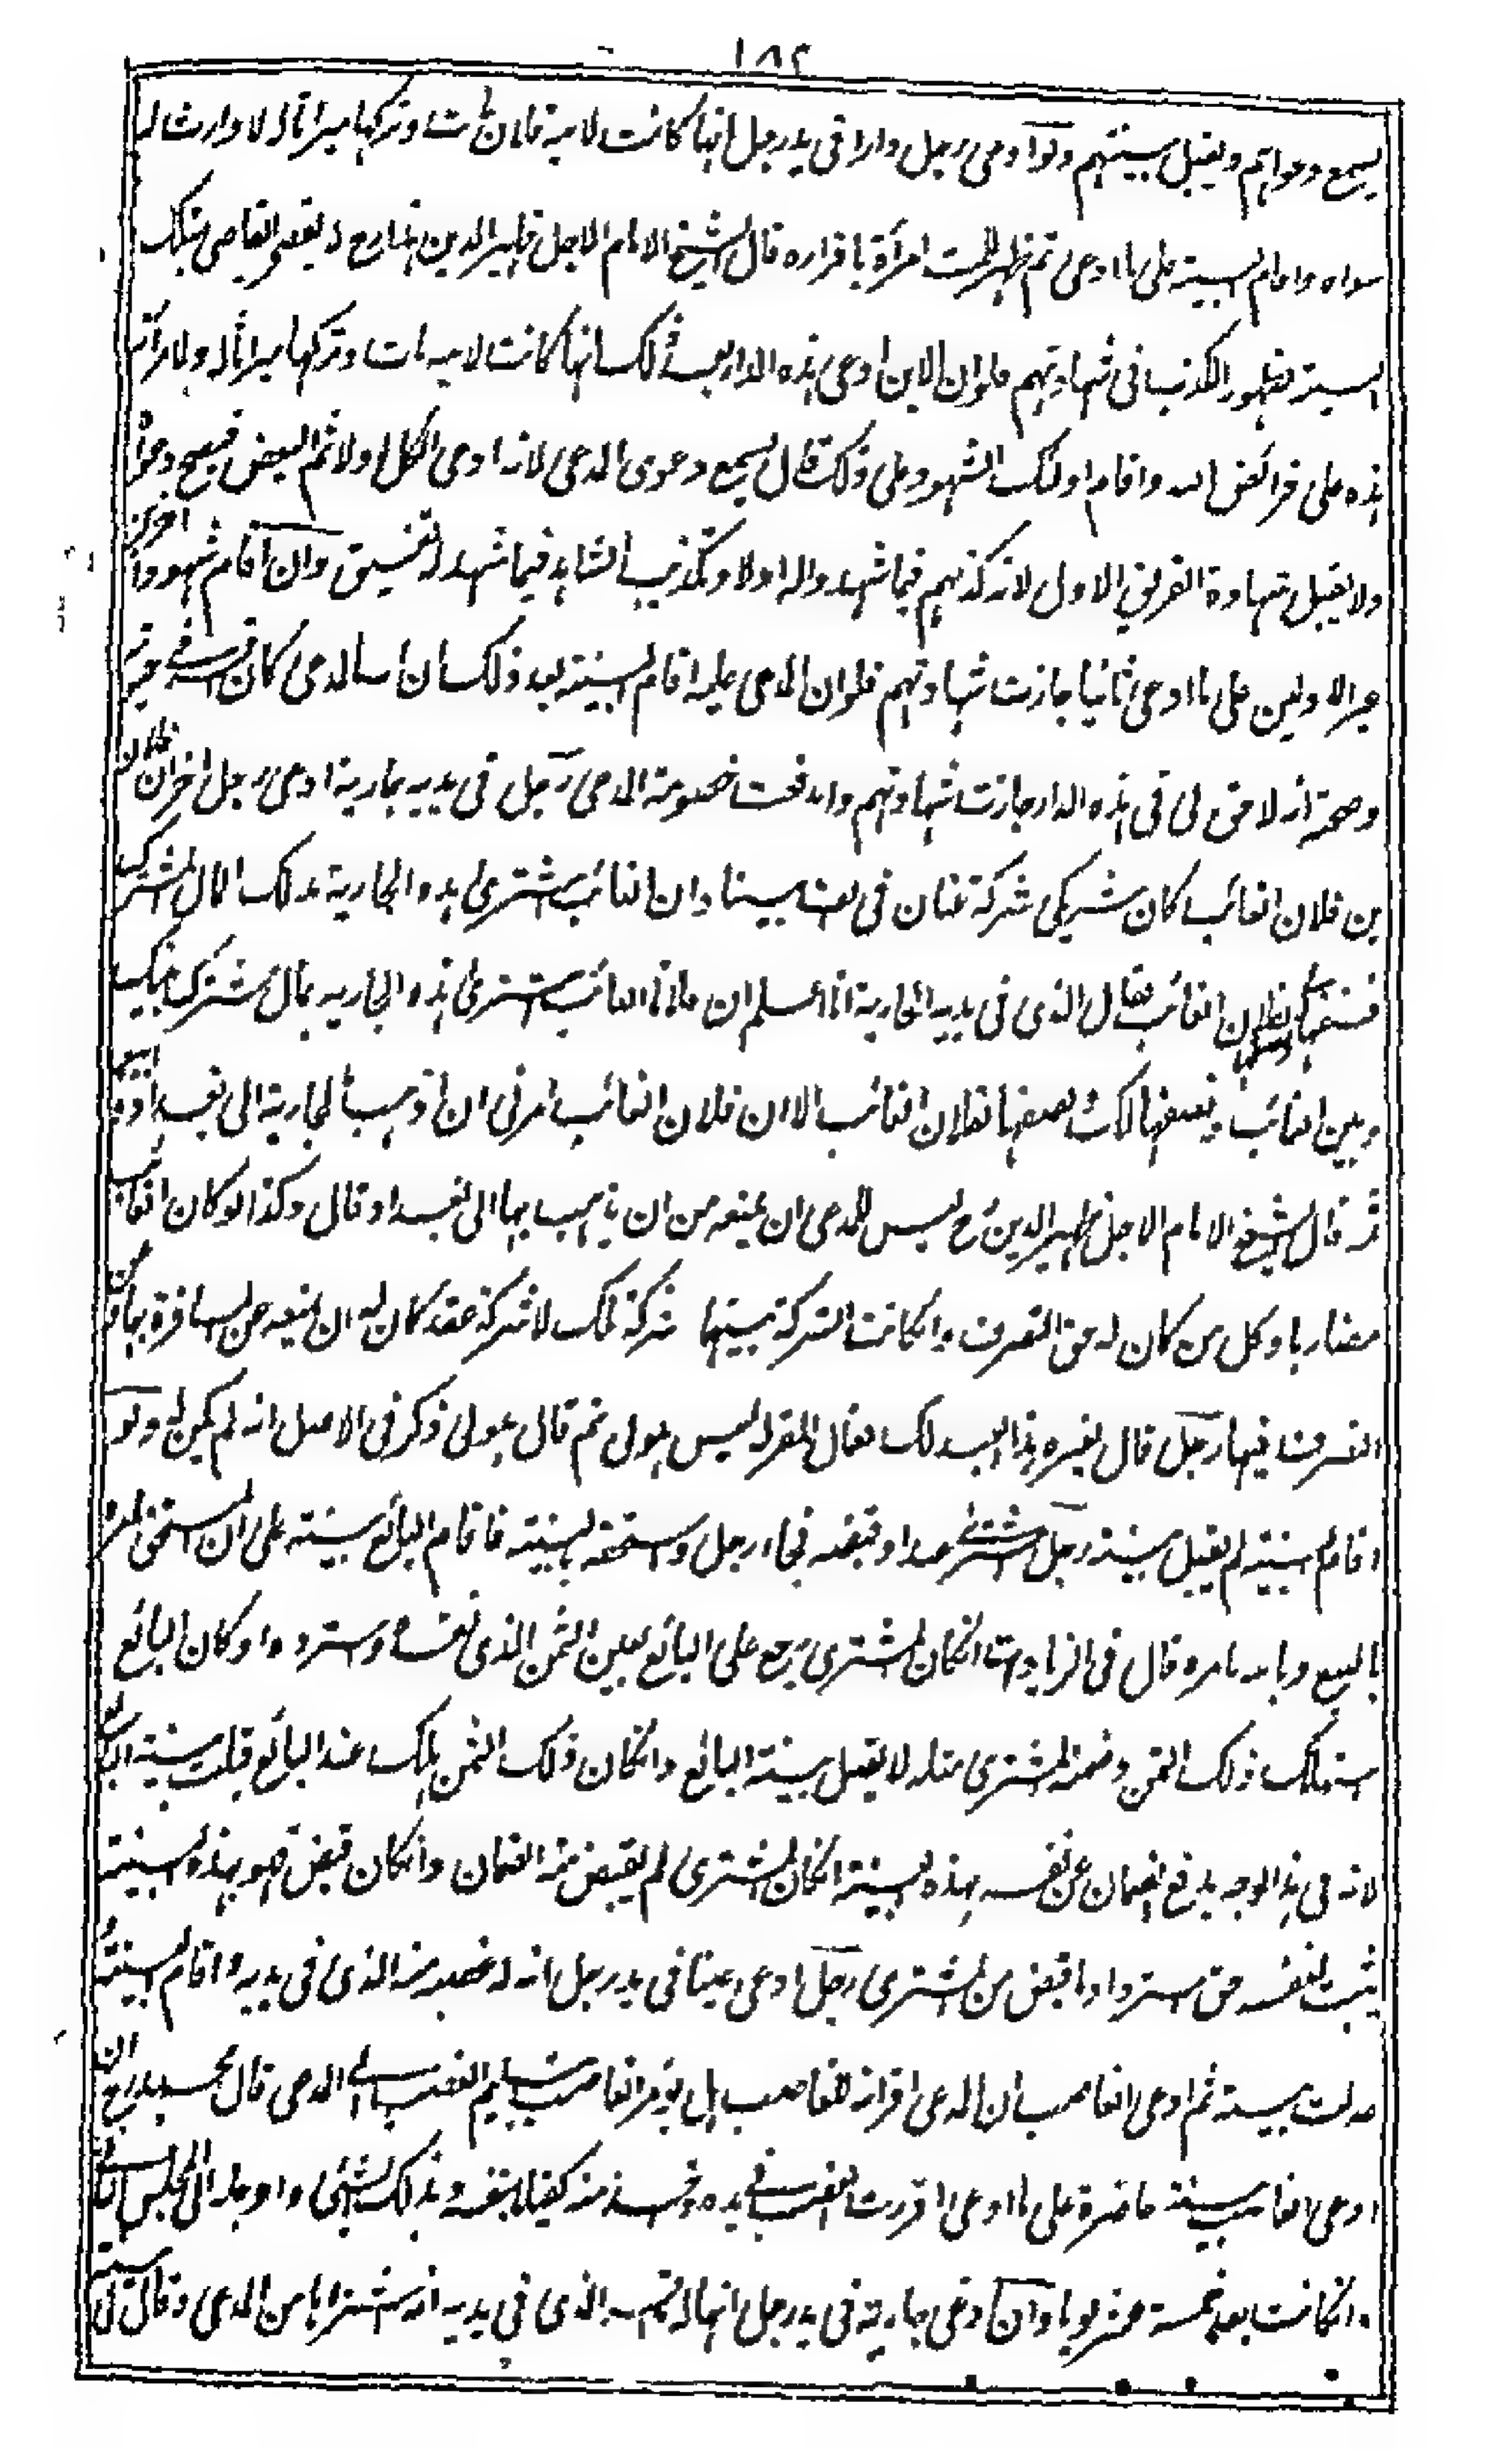 ١٨٢
يسمع دعواهم ويقبل بينتهم ولو ادعى رجل دارا في يد رجل انها كانت لابيه فلان مات وتركها ميراثا له لا وارث له
سواه واقام البينة على ما ادعى ثم ظهر للميت امرأة باقراره قال الشيخ الامام الاجل ظهير الدين القاضي بتلك
البينة لظهور الكذب في شهادتهم فلو ان الابن ادعى هذه الدار بعد ذلك انها كانت لابيه مات وتركها ميراثا له ولامرأته
هذه على فرائض الله واقام اولئك الشهود على ذلك قال يسمع دعوى المدعي لانه ادعى الكل اولا ثم البعض فيصح دعواه
ولا يقبل شهادة الفريق الاول لانه كذبهم فيما شهدوا له اولا وتكذيب الشاهد فيما شهد له تفسيق وان اقام شهودا اخرين
غير الاولين على ما ادعى ثانيا جازت شهادتهم فلو ان المدعى عليه اقام البينة بعد ذلك ان المدعي كان اقر في
وصحته انه لا حق لي في هذه الدار جازت شهادتهم واندفعت خصومة المدعي رجل في يديه جارية ادعى رجل اخر ان فلان
بن فلان الغائب كان شريكي شركة عنان في وان الغائب اشترى هذه الجارية بذلك المال المشترك
فنصفها لفلان الغائب فقال الذي في يديه الجارية انا اعلم ان فلانا الغائب اشترى هذه الجارية بمال مشترك بينك
وبين الغائب ونصفها لك ونصفها لفلان الغائب الا ان فلان الغائب امرني ان اذهب بالجارية الى بغداد
قال الشيخ الامام الاجل ظهير الدين رح ليس للمدعي ان يمنعه من ان يذهب بها الى بغداد وقال وكذا لو كان الغائب
مضاربا وكل من كان له حق التصرف وان كانت الشركة بينهما شركة ملك لا شركة عقد كان له ان يمنعه من المسافرة بها
التصرف فيها رجل قال لغيره هذا العبد لك فقال المقر له ليس هو لي ثم قال هو لي ذكر في الاصل انه لم يكن له ولو
اقام بينة لم يقبل بينته رجل اشترى عبدا وقبضه فجاء رجل واستحقه بالبينة فاقام البائع بينة على ان المستحق امر
بالبيع وباعه بامره قال في الزيادات ان كان المشتري يرجع على البائع بعين الثمن الذي نقده واسترده او كان البائع
استهلك ذلك الثمن وضمنه المشتري مثله لا يقبل بينة البائع وان كان ذلك الثمن هلك عند البائع قبلت بينة البائع
لانه في هذا الوجه يدفع الضمان عن نفسه بهذه البينة ان كان المشتري لم يقبض منه الضمان وان كان قبض فهو بهذه البينة
يثبت لنفسه حق استرداد ما قبض من المشتري رجل ادعى عينا في يد رجل انه له غصبه منه الذي في يديه واقام البينة
عدلت بينته ثم ادعى الغاصب ان المدعي اقر انه للغاصب هل يؤمر الغاصب بتسليم الغصب الى المدعي قال محمد رح ان
ادعى الغاصب بينة حاضرة على ما ادعى اقررت الغصب في يده واخذ منه كفيلا بنفسه وبذلك الشيء واؤجله الى المجلس الثاني
وان كانت بعد خمسة عشر يوما وان ادعى جارية في يد رجل انها له الذي في يديه انه اشتراها من المدعي وقال